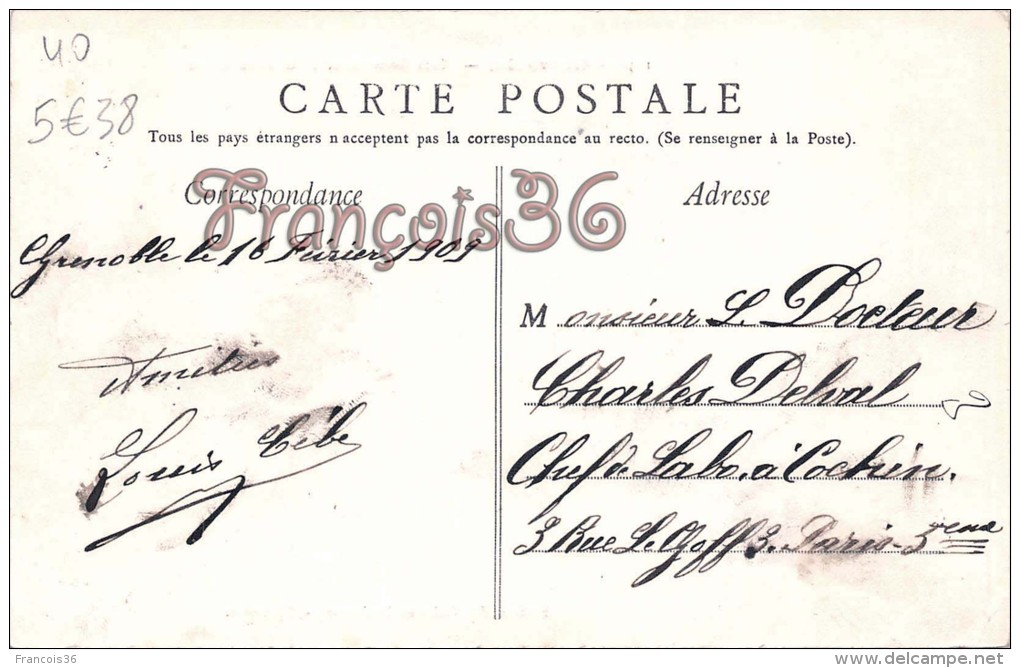 40
5€38
CARTE POSTALE
Tous les pays étrangers n acceptent pas la correspondance au recto. (Se renseigner à la Poste).
Correspondance
François36
Adresse
Grenoble le 16 Février 1909
Monsieur L. Docteur
Amitiés
Charles Delval
Louis
Chef de Labo. à Cochin.
3 Rue L. Goff 3. Paris - 5eme
Francois36
www.delcampe.net